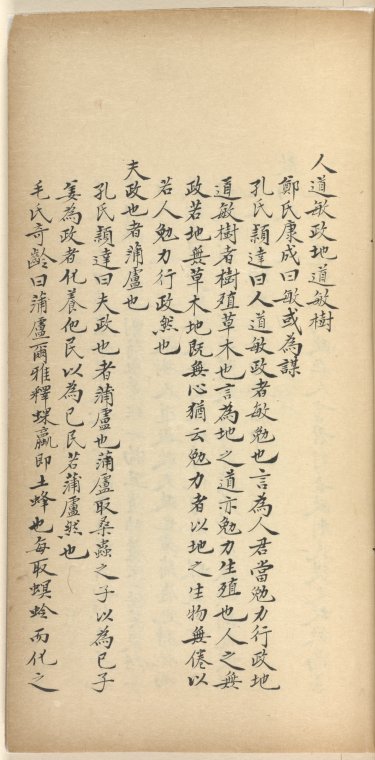 人道敏政地道敏樹
鄭氏康成曰敏或為謀
孔氏穎達曰人道敏政者敏勉也言為人君當勉力行政地
道敏樹者樹殖草木也言為地之道亦勉力生殖也人之無
政若地無草木地既無心猶云勉力者以地之生物無倦以
若人勉力行政然也
夫政也者蒲盧也
孔氏穎達曰夫政也者蒲盧也蒲盧取桑蟲之子以為己子
善為政者化養他民以為己民若蒲盧然也
毛氏奇齡曰蒲盧爾雅釋蜾蠃即土蜂也每取螟蛉而化之